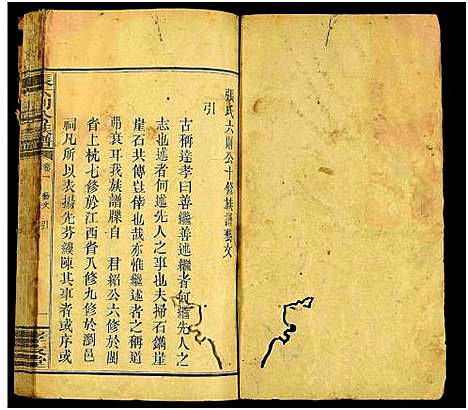 張氏六則公十修族譜藝文
引
古稱達孝曰善繼善述繼者何繼先人之
志也述者何述先人之事也夫掃石鐫崖
崖石共傳豈倖也哉亦惟繼述者之稱道
弗衰耳我族譜牒自 君紹公六修於閩
省上杭七修於江西省八修九修於瀏邑
祠凡所以表揚先芬縷陳其事者或序或
卷一
藝文 引